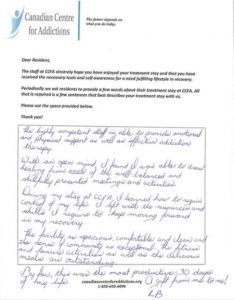 Canadian Centre
for Addictions
The future depends on
what you do today.
Dear Resident,
The staff at CCFA sincerely hope you have enjoyed your treatment stay and that you have
received the necessary tools and self-awareness for a need fulfilling lifestyle to recovery.
Periodically we ask residents to provide a few words about their treatment stay at CCFA. All
that is required is a few sentences that best describes your treatment stay with us.
Please use the space provided below.
Thank you!
The highly empathetic staff is able to provide emotional
and physical support as well as effective addiction
therapy.
With an open mind, I found I was able to draw
healing from each of the well-balanced and
skillfully presented meetings and activities.
During my stay at CCFA, I learned how to regain
control of my life. I left with the resources and
skills I require to keep moving forward
in my recovery.
The facility is spacious, comfortable and clean and
the sense of community is exceptional. The fitness
and leisure activities as well as the delicious
meals are outstanding.
By far, this was the most productive 30 days
of my life!
canadiancentreforaddictions.org
1-855-692-6096
A gift from me to me.
LB